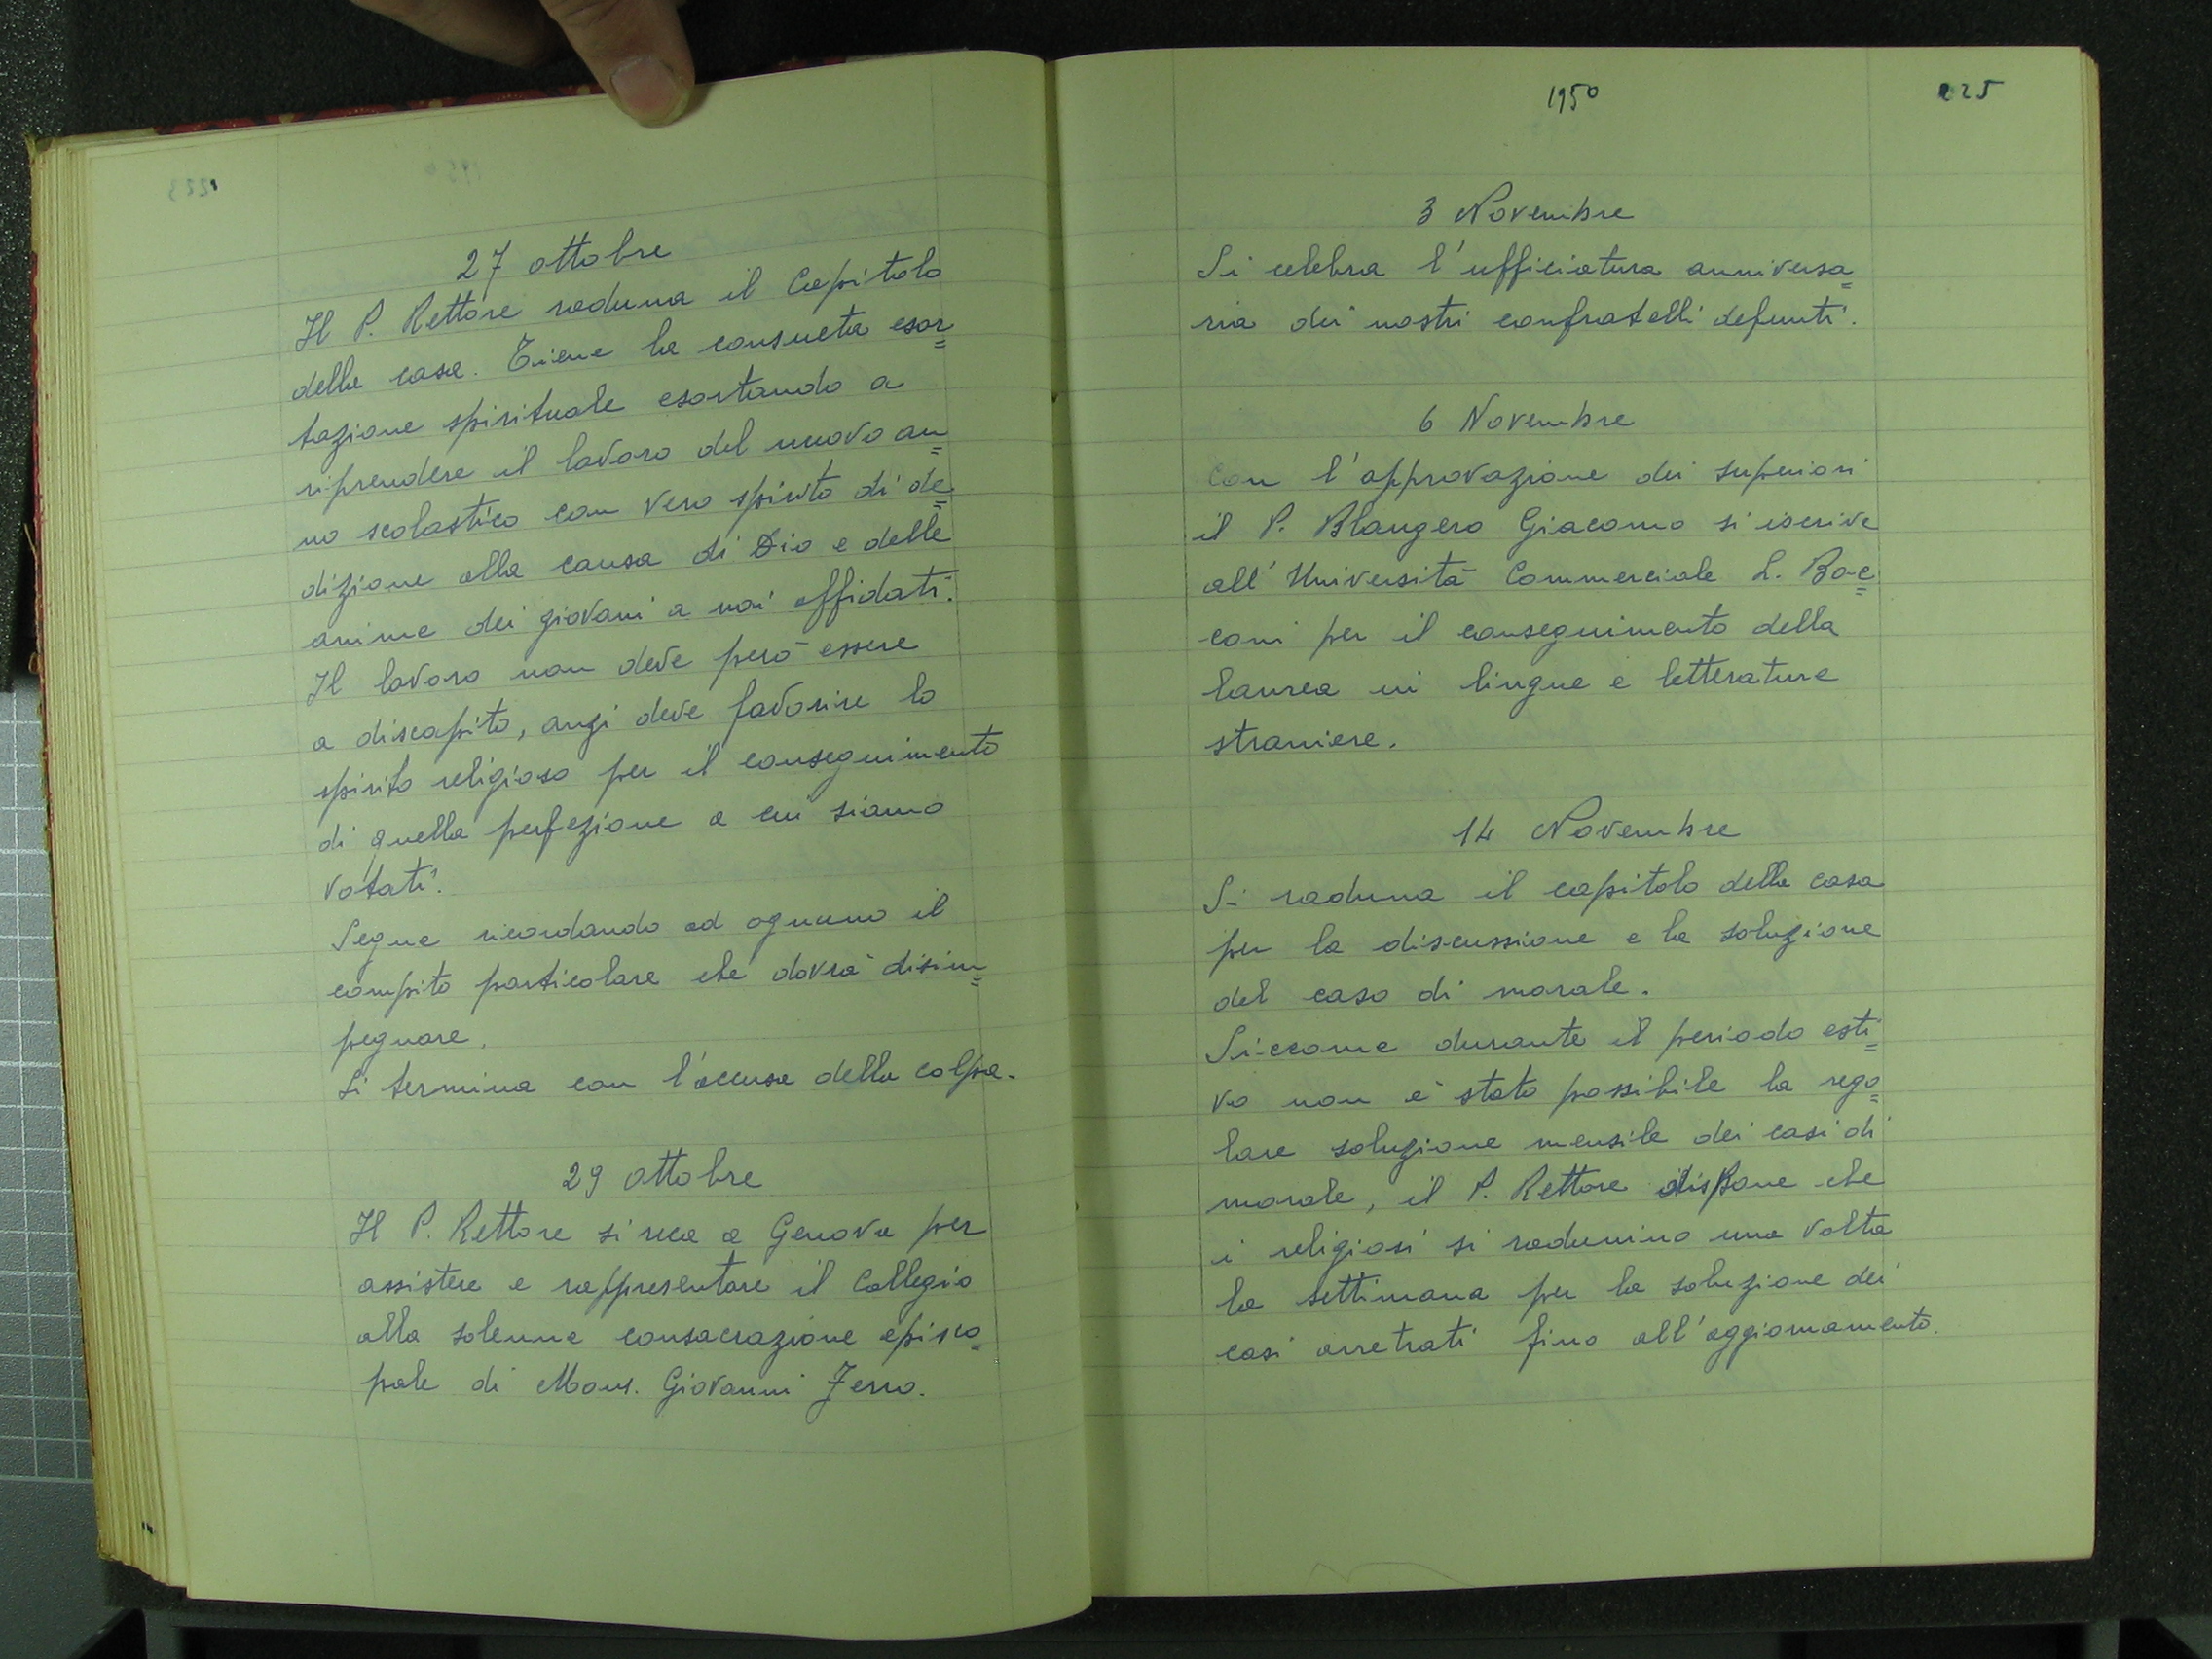 27 ottobre
Il P. Rettore raduna il Capitolo
della casa. Tiene la consueta esor=
tazione spirituale esortando a
riprendere il lavoro del nuovo an=
no scolastico con vero spirito di de=
dizione alla causa di Dio e delle
anime dei giovani a noi affidati.
Il lavoro non deve però essere
a discapito, anzi deve favorire lo
spirito religioso per il conseguimento
di quella perfezione a cui siamo
votati.
Segue ricordando ad ognuno il
compito particolare che dovrà disim=
pegnare.
Si termina con l'accusa della colpa.
29 ottobre
Il P. Rettore si reca a Genova per
assistere e rappresentare il Collegio
alla solenne consacrazione episco=
pale di Mons. Giovanni Ferro.
1950
225
3 Novembre
Si celebra l'ufficiatura anniversa=
ria dei nostri confratelli defunti.
6 Novembre
Con l'approvazione dei superiori
il P. Blangero Giacomo si iscrive
all'Università Commerciale L. Boc=
coni per il conseguimento della
laurea in lingue e letterature
straniere.
14 Novembre
Si raduna il capitolo della casa
per la discussione e la soluzione
del caso di morale.
Siccome durante il periodo esti=
vo non è stato possibile la rego=
lare soluzione mensile dei casi di
morale, il P. Rettore dispone che
i religiosi si radunino una volta
la settimana per la soluzione dei
casi arretrati fino all'aggiornamento.